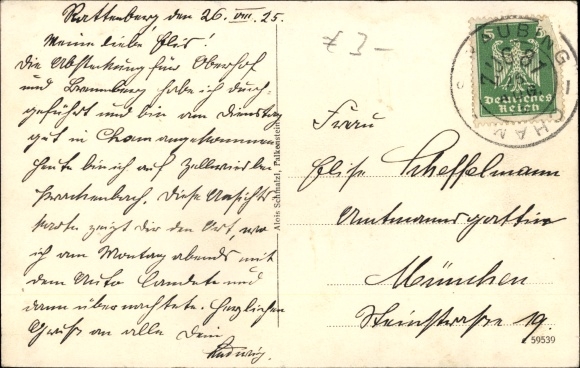 Rattenberg den 26. VIII. 25.
Meine liebe Elis!
Die Absteckung für Oberhof
und Brennberg habe ich durch-
geführt und bin am Dienstag
gut in Cham angekommen
heute bin ich auf
Prackenbach. Diese Ansichts
karte zeigt dir den Ort, wo
ich am Montag abends mit
dem Auto landete und
dann übernachtete. Herzlichen
Gruß an alle Dein
Ludwig.
£ 3 –
Alois Schmatzl, Falkenstein
5
Deutsches
Reich
CHAM
Frau
Elise Scheffelmann
Amtmannsgattin
München
Steinstraße 19.
59539